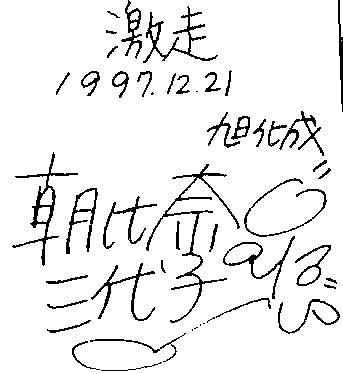 激走
1997.12.21
旭化成
朝比奈
三代子